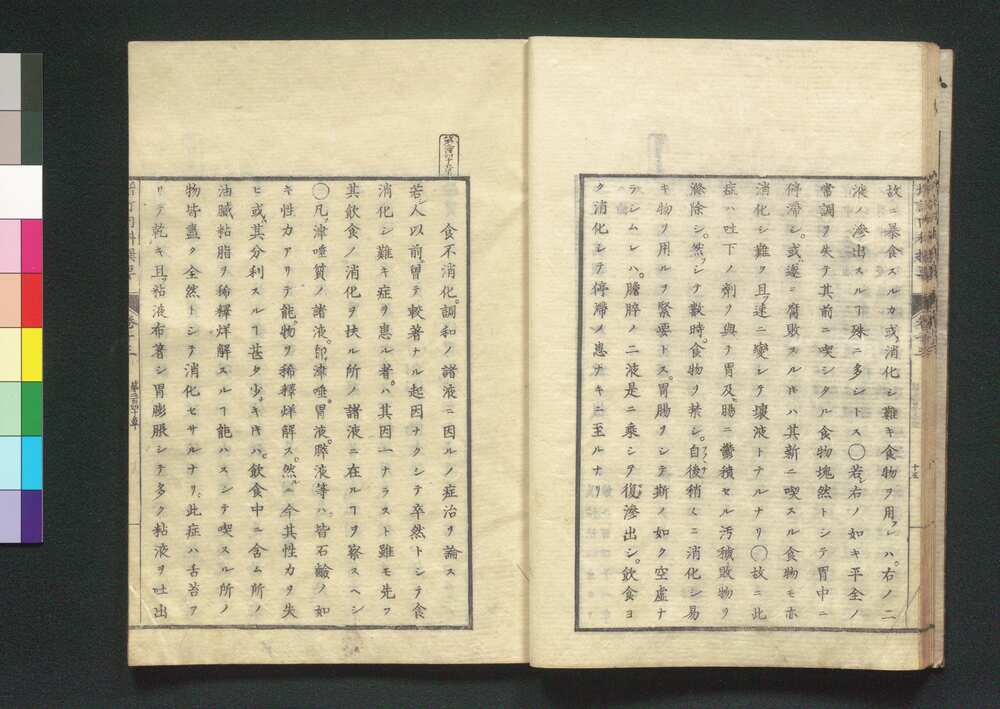 故ニ暴食スルカ或ハ消化シ難キ食物ヲ用レハ右ノ二
液ハ滲出スルヿ殊ニ多シトス〇若シ右ノ如キ平全ノ
常調ヲ失テ其前ニ喫シタル食物塊然トシテ胃中ニ
停滞シ或ハ遂ニ腐敗スル𪜈ハ其新ニ喫スル食物モ亦
消化シ難ク且ツ速ニ變シテ壞液トナルナリ〇故ニ此
症ハ吐下ノ劑ヲ與テ胃及ヒ腸ニ鬱積セル汚穢敗物ヲ
滌除シ然シテ數時食物ヲ禁シ自後稍々ニ消化シ易
キ物ヲ用ルヲ緊要トス胃腸ヲシテ斯ノ如ク空虚ナ
ラシムレハ膽膵ノ二液是ニ乘シテ復滲出シ飲食ヨ
ク消化シテ停滞ノ患ナキニ至ルナリ
食不消化調和ノ諸液ニ因ルノ症治ヲ論ス
若シ人以前曽テ較著ナル起因ナクシテ卒然トシテ食
消化シ難キ症ヲ患ル者ハ其因一ナラスト雖モ先ツ
其飲食ノ消化ヲ扶ル所ノ諸液ニ在ルヿヲ察スヘシ
〇凡ソ津唾質ノ諸液即津唾胃液膵液等ハ皆石鹸ノ如
キ性力アリテ能ク物ヲ稀釋烊解ス然ルニ今其性力ヲ失
ヒ或ハ其分利スルヿ甚タ少キ𪜈ハ飲食中ニ含ム所ノ
油膩粘脂ヲ稀釋烊解スルヿ能ハスシテ喫スル所ノ
物皆盡ク全然トシテ消化セサルナリ此症ハ舌苔アリ
リテ乾キ且ツ粘液布著シ胃膨脹シテ多ク粘液ヲ吐出